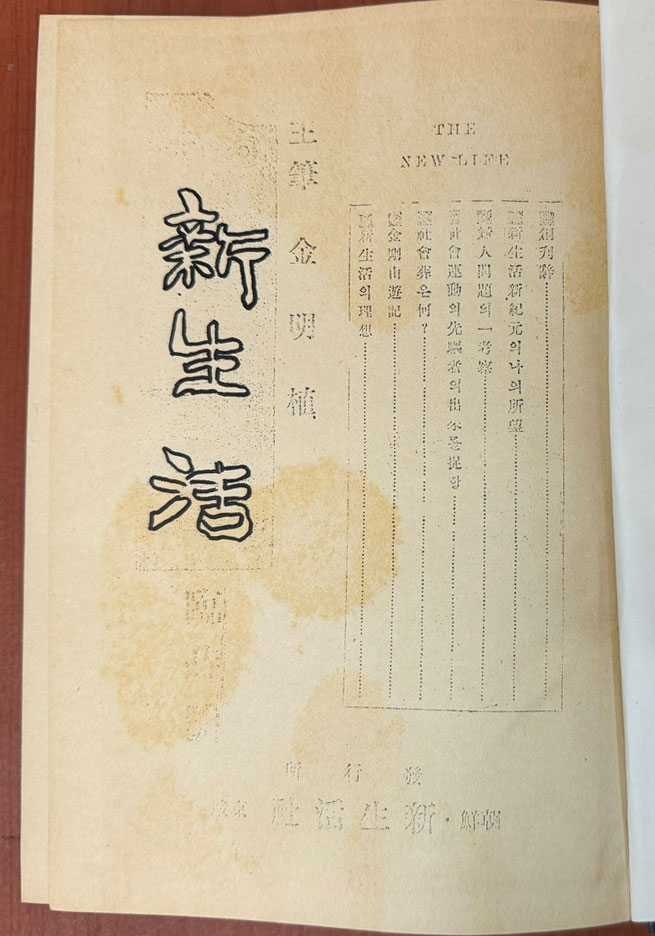 THE
NEW LIFE
創刊辭
新生活新紀元의나의所望
婦人問題의一考察
社會運動의先驅者의出來를促함
社會葬은何?
金剛山遊記
新生活의理想
主筆 金明植
新生活
臨
發行所
朝鮮·新生活社